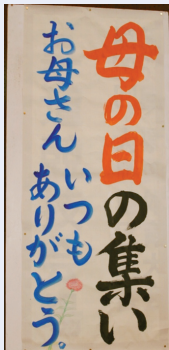 母の日の集い
お母さん いつも
ありがとう。